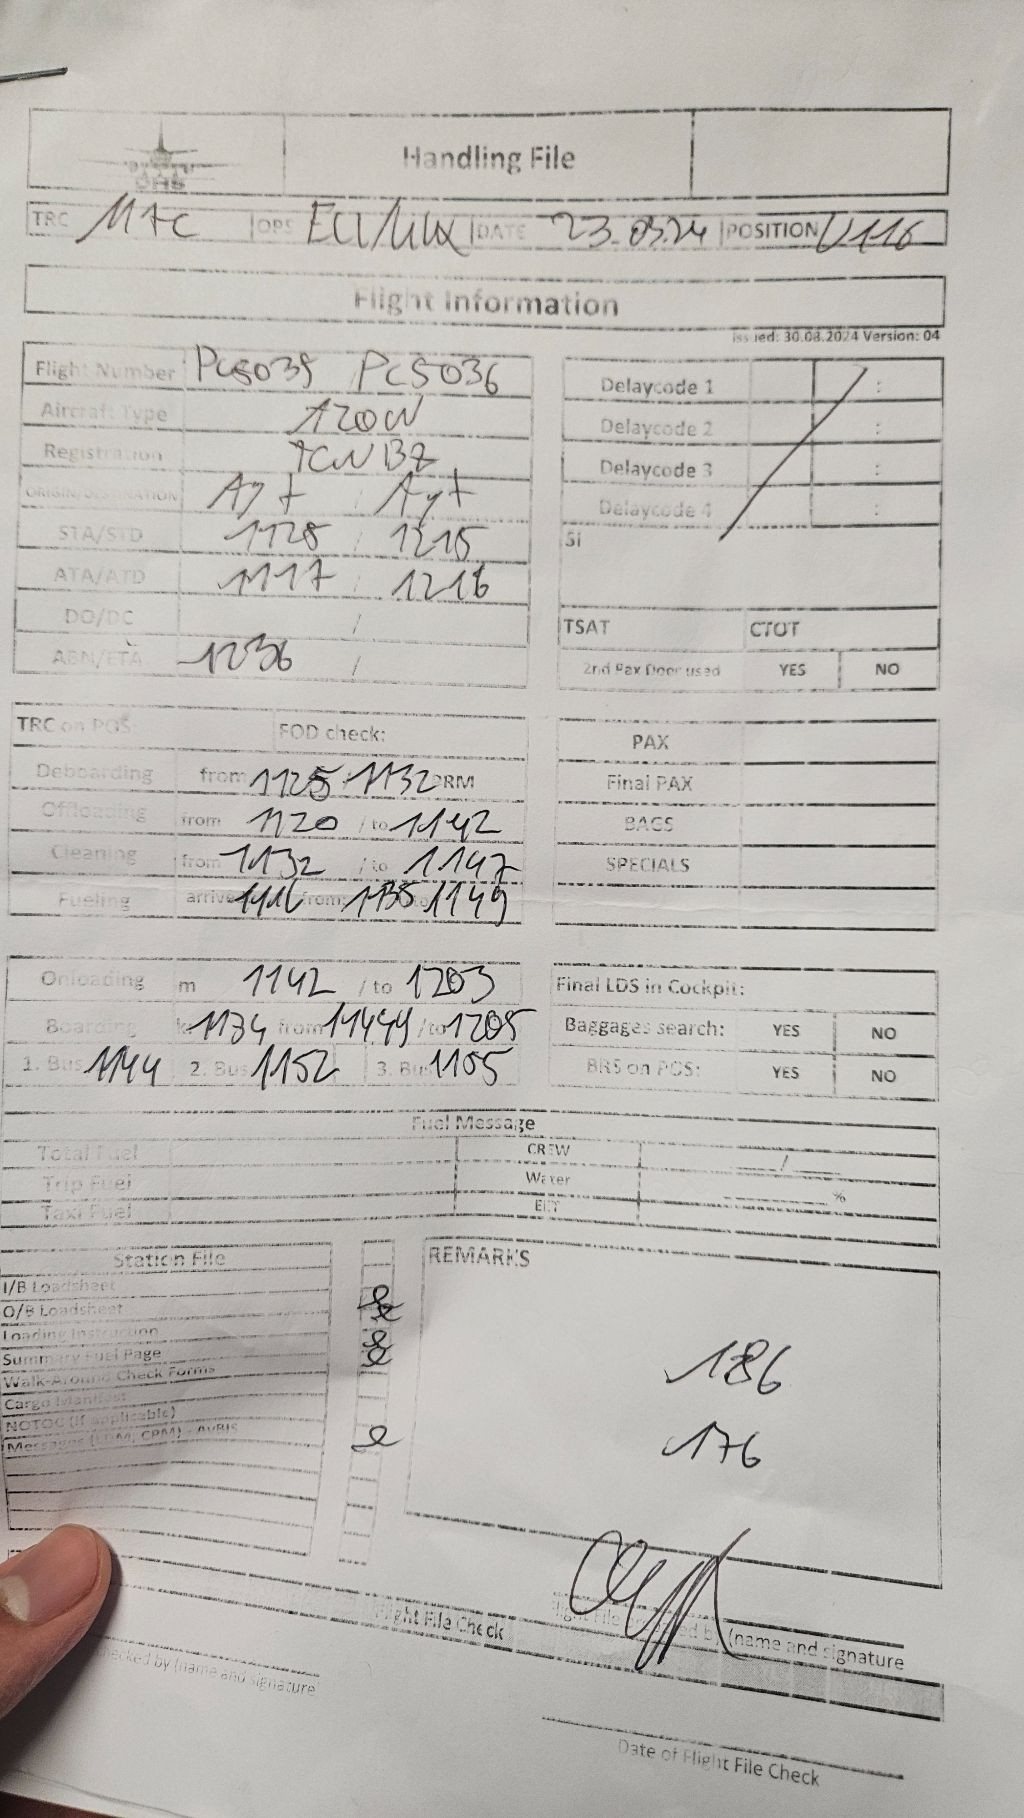 Handling File
TRC MAC OPS DATE 23.09.24 POSITION V116
Flight Information
Issued: 30.08.2024 Version: 04
Flight Number PC5035 PC5036
Aircraft Type
Registration TCNBZ
ORIGIN/DESTINATION Ayt / Ayt
STA/STD 1128 / 1215
ATA/ATD 1117 / 1216
DO/DC /
ABN/ETA 1236 /
Delaycode 1 :
Delaycode 2 :
Delaycode 3 :
Delaycode 4 :
SI
TSAT CTOT
2nd Pax Door used YES NO
TRC on POS: FOD check:
Deboarding from 1125 / 1132 PRM
Offloading from 1120 / to 1142
Cleaning from 1132 / to 1147
Fueling arrive 1116 from 1135 to 1149
PAX
Final PAX
BAGS
SPECIALS
Onloading 1142 / to 1203
Boarding 1134 from 11444 / to 1205
1. Bus 1144 2. Bus 1152 3. Bus 1105
Final LDS in Cockpit:
Baggages search: YES NO
BRS on POS: YES NO
Fuel Message
Total Fuel CREW /
Trip Fuel Water %
Taxi Fuel EET
Station File
I/B Loadsheet
O/B Loadsheet
Loading Instruction
Summary Fuel Page
Walk-Around Check Forms
Cargo Manifest
NOTOC (if applicable)
Messages (LDM, CPM) - AvBIS
REMARKS
186
176
(name and signature
Flight File Check
checked by (name and signature
Date of Flight File Check